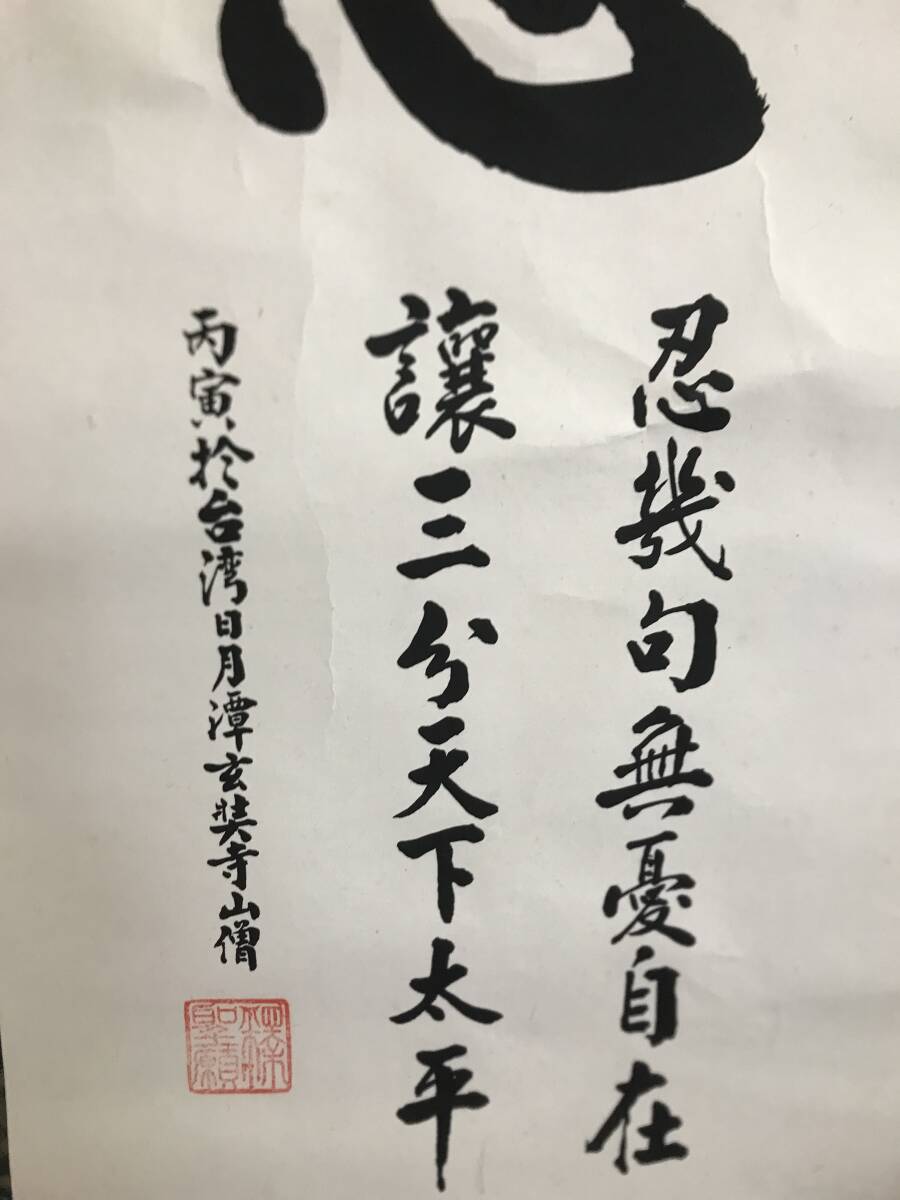 忍幾句無憂自在
讓三分天下太平
丙寅於台湾日月潭玄奘寺山僧